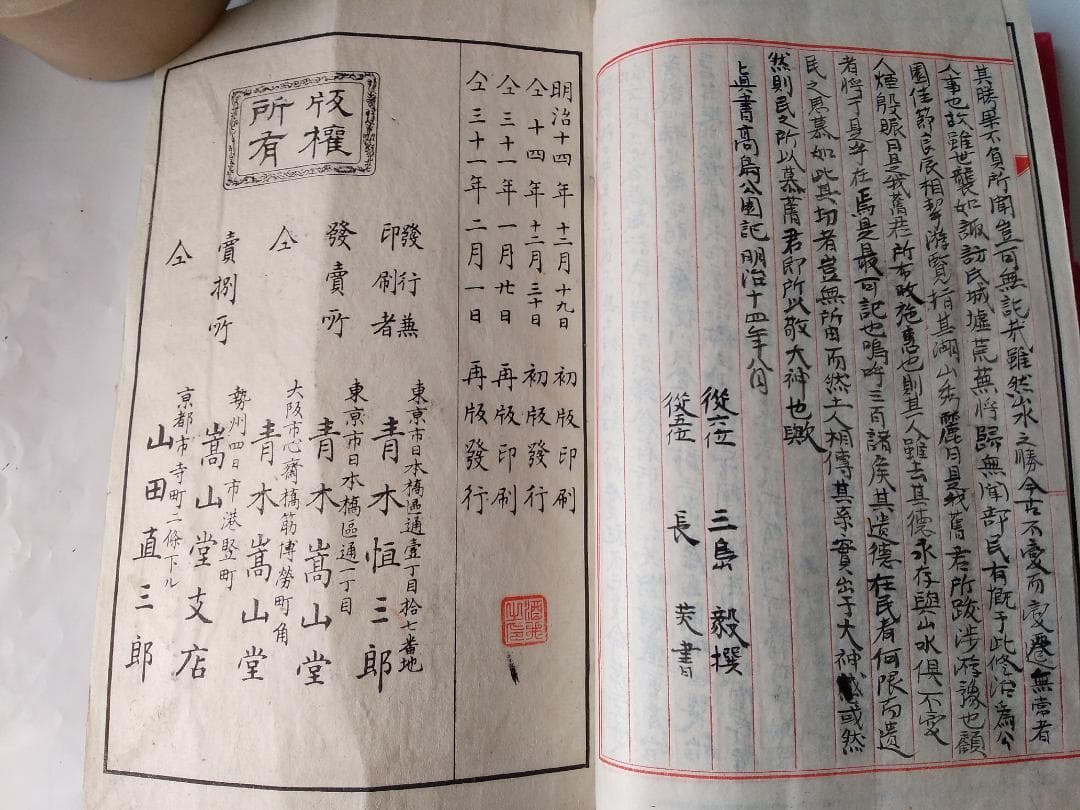 其勝果不負所聞豈可無記哉雖然山水之勝今古不變而變遷無常者
人事也故雖世襲如諏訪氏城墟荒蕪將歸無聞部民有慨于此修治爲公
園佳節良辰相攜游覧指其湖山秀麗曰是我舊君所跋涉游豫也顧
人煙殷賑曰是我舊君所布政施惠也則其人雖去其德永存與山水俱不変
者将于是乎在焉是最可記也嗚呼三百諸矦其遺德在民者何限而遺
民之思慕如此其切者豈無所由而然土人相傳其系實出于大神或然
然則民之所以慕舊君即所以敬大神也歟
眞書高島公園記明治十四年八月
從六位 三島 毅撰
從五位 長 炗書
明治十四年十二月十九日 初版印刷
仝十四年十二月三十日 初版發行
仝三十一年一月廿日 再版印刷
仝三十一年二月一日 再版發行
版權
所有
發行兼
印刷者
東京市日本橋區通壹丁目拾七番地
青木恒三郎
發賣所
東京市日本橋區通一丁目
青木嵩山堂
仝
大阪市心齋橋筋博勞町角
青木嵩山堂
賣捌所
勢州四日市港竪町
嵩山堂支店
仝
京都市寺町二條下ル
山田直三郎